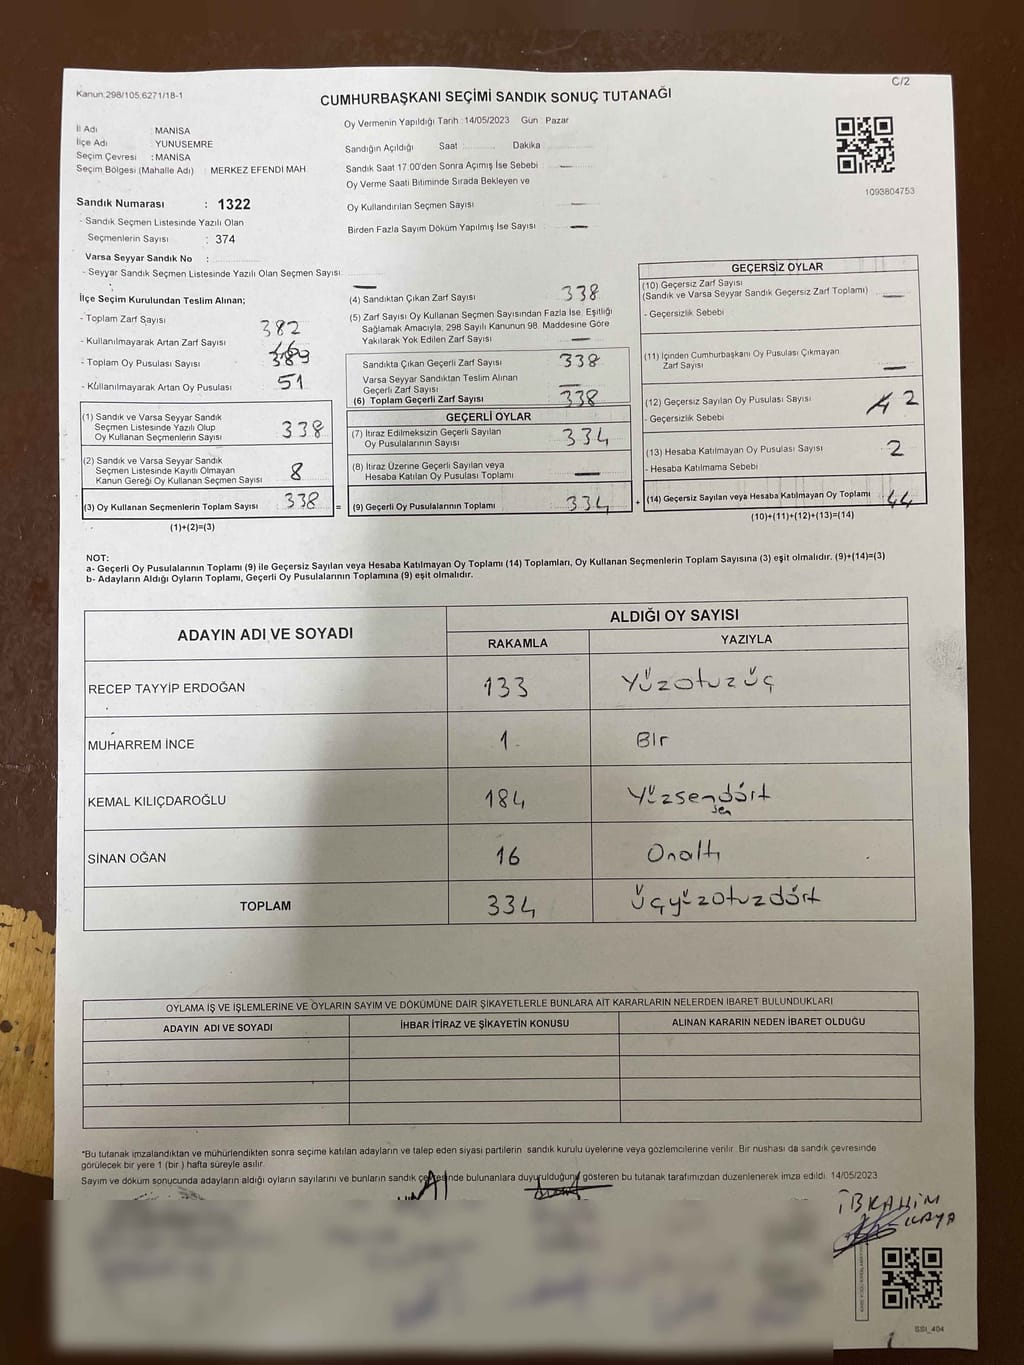 Kanun.298/105,6271/18-1
C/2
CUMHURBAŞKANI SEÇİMİ SANDIK SONUÇ TUTANAĞI
İl Adı : MANİSA
İlçe Adı YUNUSEMRE
Seçim Çevresi : MANİSA
Seçim Bölgesi (Mahalle Adı) : MERKEZ EFENDİ MAH
Sandık Numarası : 1322
- Sandık Seçmen Listesinde Yazılı Olan
Seçmenlerin Sayısı : 374
Varsa Seyyar Sandık No :
- Seyyar Sandık Seçmen Listesinde Yazılı Olan Seçmen Sayısı:
Oy Vermenin Yapıldığı Tarih :14/05/2023 Gün : Pazar
Sandığın Açıldığı Saat : Dakika
Sandık Saat 17.00'den Sonra Açımış İse Sebebi
Oy Verme Saati Bitiminde Sırada Bekleyen ve
Oy Kullandırılan Seçmen Sayısı
Birden Fazla Sayım Döküm Yapılmış İse Sayısı
1093804753
İlçe Seçim Kurulundan Teslim Alınan;
- Toplam Zarf Sayısı 382
- Kullanılmayarak Artan Zarf Sayısı
- Toplam Oy Pusulası Sayısı 389
- Kullanılmayarak Artan Oy Pusulası 51
(1) Sandık ve Varsa Seyyar Sandık
Seçmen Listesinde Yazılı Olup
Oy Kullanan Seçmenlerin Sayısı 338
(2) Sandık ve Varsa Seyyar Sandık
Seçmen Listesinde Kayıtlı Olmayan
Kanun Gereği Oy Kullanan Seçmen Sayısı 8
(3) Oy Kullanan Seçmenlerin Toplam Sayısı 338 =
(1)+(2)=(3)
(4) Sandıktan Çıkan Zarf Sayısı 338
(5) Zarf Sayısı Oy Kullanan Seçmen Sayısından Fazla İse, Eşitliği
Sağlamak Amacıyla; 298 Sayılı Kanunun 98. Maddesine Göre
Yakılarak Yok Edilen Zarf Sayısı
Sandıkta Çıkan Geçerli Zarf Sayısı 338
Varsa Seyyar Sandıktan Teslim Alınan
Geçerli Zarf Sayısı
(6) Toplam Geçerli Zarf Sayısı 338
GEÇERLİ OYLAR
(7) İtiraz Edilmeksizin Geçerli Sayılan
Oy Pusulalarının Sayısı 334
(8) İtiraz Üzerine Geçerli Sayılan veya
Hesaba Katılan Oy Pusulası Toplamı
(9) Geçerli Oy Pusulalarının Toplamı 334 +
GEÇERSİZ OYLAR
(10) Geçersiz Zarf Sayısı
(Sandık ve Varsa Seyyar Sandık Geçersiz Zarf Toplamı)
- Geçersizlik Sebebi
(11) İçinden Cumhurbaşkanı Oy Pusulası Çıkmayan
Zarf Sayısı
(12) Geçersiz Sayılan Oy Pusulası Sayısı 2
- Geçersizlik Sebebi
(13) Hesaba Katılmayan Oy Pusulası Sayısı 2
- Hesaba Katılmama Sebebi
(14) Geçersiz Sayılan veya Hesaba Katılmayan Oy Toplamı
(10)+(11)+(12)+(13)=(14)
NOT:
a- Geçerli Oy Pusulalarının Toplamı (9) ile Geçersiz Sayılan veya Hesaba Katılmayan Oy Toplamı (14) Toplamları, Oy Kullanan Seçmenlerin Toplam Sayısına (3) eşit olmalıdır. (9)+(14)=(3)
b- Adayların Aldığı Oyların Toplamı, Geçerli Oy Pusulalarının Toplamına (9) eşit olmalıdır.
ADAYIN ADI VE SOYADI
ALDIĞI OY SAYISI
RAKAMLA YAZIYLA
RECEP TAYYİP ERDOĞAN 133 Yüzotuzüç
MUHARREM İNCE 1 Bir
KEMAL KILIÇDAROĞLU 184 Yüzsendört
sen
SİNAN OĞAN 16 Onaltı
TOPLAM 334 Üçyüzotuzdört
OYLAMA İŞ VE İŞLEMLERİNE VE OYLARIN SAYIM VE DÖKÜMÜNE DAİR ŞİKAYETLERLE BUNLARA AİT KARARLARIN NELERDEN İBARET BULUNDUKLARI
ADAYIN ADI VE SOYADI İHBAR İTİRAZ VE ŞİKAYETİN KONUSU ALINAN KARARIN NEDEN İBARET OLDUĞU
*Bu tutanak imzalandıktan ve mühürlendikten sonra seçime katılan adayların ve talep eden siyasi partilerin sandık kurulu üyelerine veya gözlemcilerine verilir. Bir nushası da sandık çevresinde
görülecek bir yere 1 (bir ) hafta süreyle asılır.
Sayım ve döküm sonucunda adayların aldığı oyların sayılarını ve bunların sandık çevresinde bulunanlara duyurulduğunu gösteren bu tutanak tarafımızdan düzenlenerek imza edildi. 14/05/2023
İBRAHİM
KAYA
SSI_404